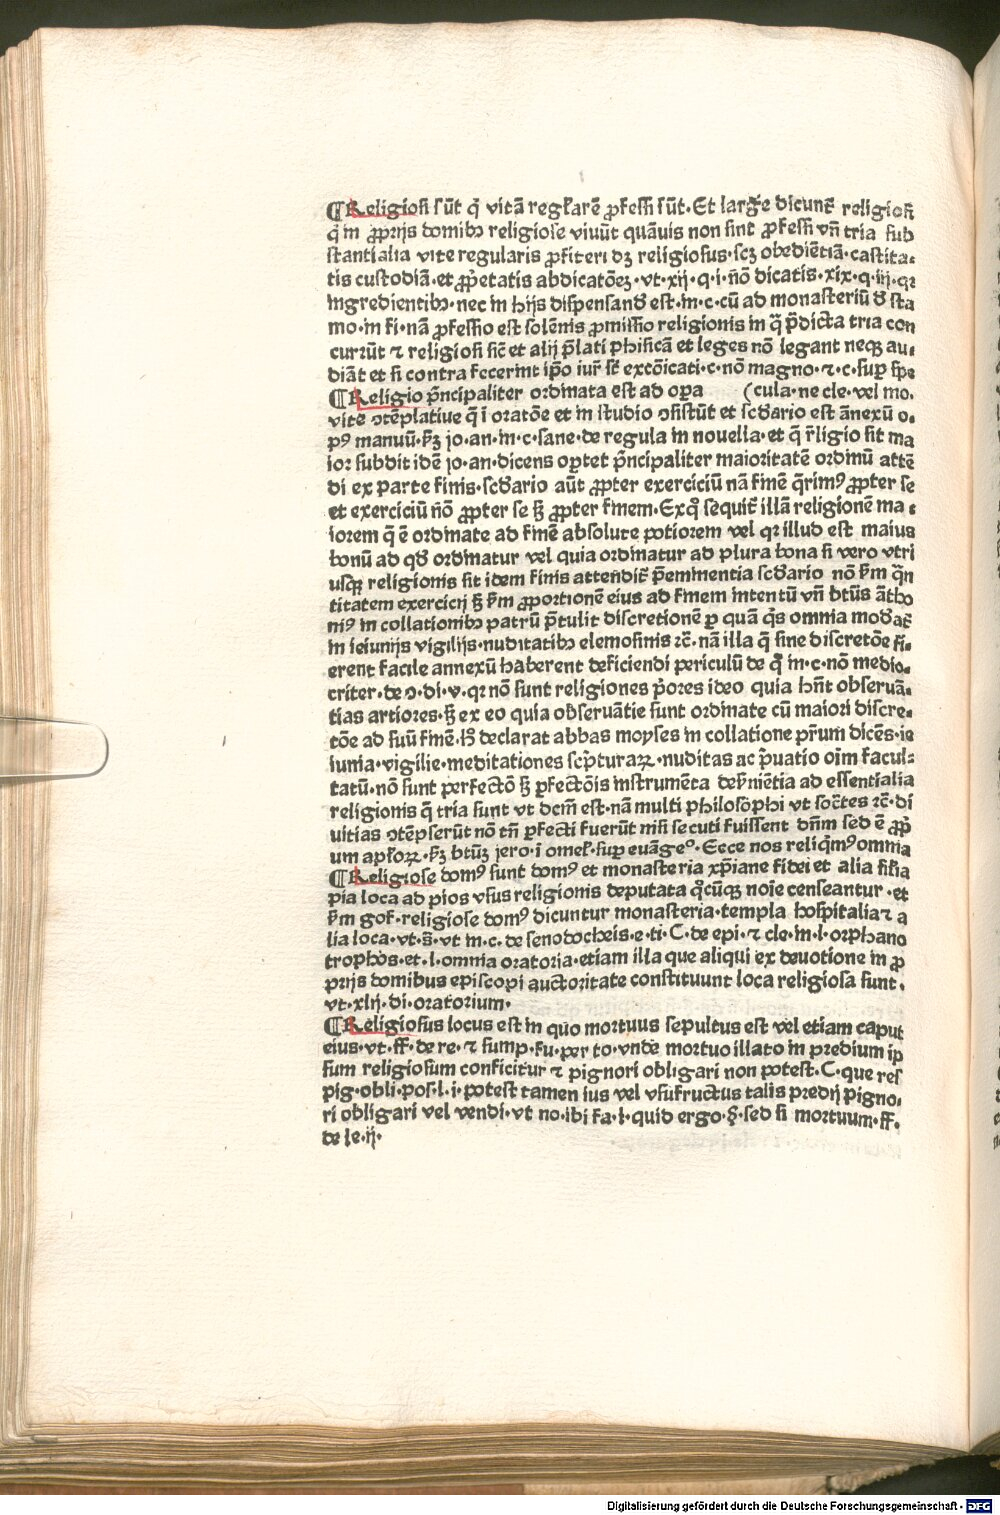 ¶Religiosi sūt q̄ vitā regl̄arē ꝓfessi sūt·Et large dicunt̄ religiosi
q̄ in ꝓprijs domibꝫ religiose viuūt quāuis non sint ꝓfessi vn̄ tria sub
stantialia vite regularis ꝓfiteri dꝫ religiosus·scꝫ obediētiā·castita⸗
tis custodiā·et ꝓp̄etatis abdicatōeꝫ·vt·xij·q·i·nō dicatis·xix·q·iij·qꝛ
ingredientibꝫ·nec in hijs dispensand̄ est·in·c·cū ad monasteriū đ sta
mo·in fi·nā ꝓfessio est solēnis ꝓmissio religionis in q̄ p̄dicta tria con
currūt ⁊ religiosi sic̄ et alij p̄lati phisicā et leges nō legant neqꝫ au⸗
diāt et si contra fecerint ip̄o iur̄ sc̄ excōicati·c·nō magno·⁊·c·suꝑ spe
¶Religio p̄ncipaliter ordinata est ad oꝑa (cula·ne cle·vel mo·
vite ꝯtēplatiue q̄ ī oratōe et in studio ꝯsistūt et scđario est ānexū o·
pꝰ manuū·ẜm jo·an·in·c·sane·de regula in nouella·et q̄ r̄ligio sit ma
ior subdit idē jo·an·dicens oꝑtet p̄ncipaliter maioritatē ordinū attē
di ex parte finis·scđario aūt ꝓpter exerciciū nā finē q̄rimꝰ ꝓpter se
et exerciciū nō ꝓpter se sꝫ ꝓpter finem·Exq̊ sequit̄ illā religionē ma⸗
iorem q̄ ē ordinate ad finē absolute potiorem vel qꝛ illud est maius
bonū ad qđ ordinatur vel quia ordinatur ad plura bona si vero vtri
usqꝫ religionis sit idem finis attendit̄ p̄eminentia scđario nō ẜm q̄n
titatem exercicij sꝫ ẜm ꝓportionē eius ad finem intentū vn̄ btūs ātho
niꝰ in collationibꝫ patrū p̄tulit discretionē ꝑ quā q̄s omnia modat̄
in ieiunijs vigilijs·nuditatibꝫ elemosinis ⁊c̄·nā illa q̄ sine discretōe fi⸗
erent facile annexū haberent deficiendi periculū de q̊ in·c·nō medio⸗
criter·de ꝯ·di·v·qꝛ nō sunt religiones p̄ores ideo quia hn̄t obseruā⸗
tias artiores·sꝫ ex eo quia obseruātie sunt ordinate cū maiori discre⸗
tōe ad suū finē·ħ declarat abbas moyses in collatione pr̄um dicēs·ie
iunia·vigilie·meditationes sc̄pturaꝝ·nuditas ac p̄uatio oīm facul⸗
tatū·nō sunt perfectō sꝫ ꝑfectōis instrumēta deẜuiētia ad essentialia
religionis q̄ tria sunt vt dcm̄ est·nā multi philosophi vt socr̄tes ⁊c̄·di
uitias ꝯtēpserūt nō tn̄ ꝑfecti fuerūt nisi secuti fuissent dn̄m sed ē ꝓp̄
um apl̄oꝝ·ẜꝫ btūꝫ jero·ī omel̄·suꝑ euāgeᵒ·Ecce nos reliq̄mꝰ omnia
¶Religiose domꝰ sunt domꝰ et monasteria xp̄iane fidei et alia ſil̄ia
pia loca ad pios vsus religionis deputata q̊cūqꝫ noīe censeantur·et
ẜm gof·religiose domꝰ dicuntur monasteria·templa hospitalia⁊ a
lia loca·vt·s̄·vt in·c·de senodocheis·e·ti·C·de epi·⁊ cle·in·l·orphano
trophos·et·l·omnia oratoria·etiam illa que aliqui ex deuotione in ꝓ
prijs domibus episcopi auctoritate constituunt loca religiosa sunt·
vt·xlij·di·oratorium·
¶Religiosus locus est in quo mortuus sepultus est vel etiam caput
eius·vt·ff·de re·⁊ sump·fu·per to·vnde mortuo illato in predium ip
sum religiosum conficitur ⁊ pignori obligari non potest·C·que res
pig·obli·pos·l·i·potest tamen ius vel vsufructus talis predij pigno⸗
ri obligari vel vendi·vt no·ibi fa·l·quid ergo·§·sed si mortuum·ff·
de le·ij·
Digitalisierung gefördert durch die Deutsche Forschungsgemeinschaft - DFG